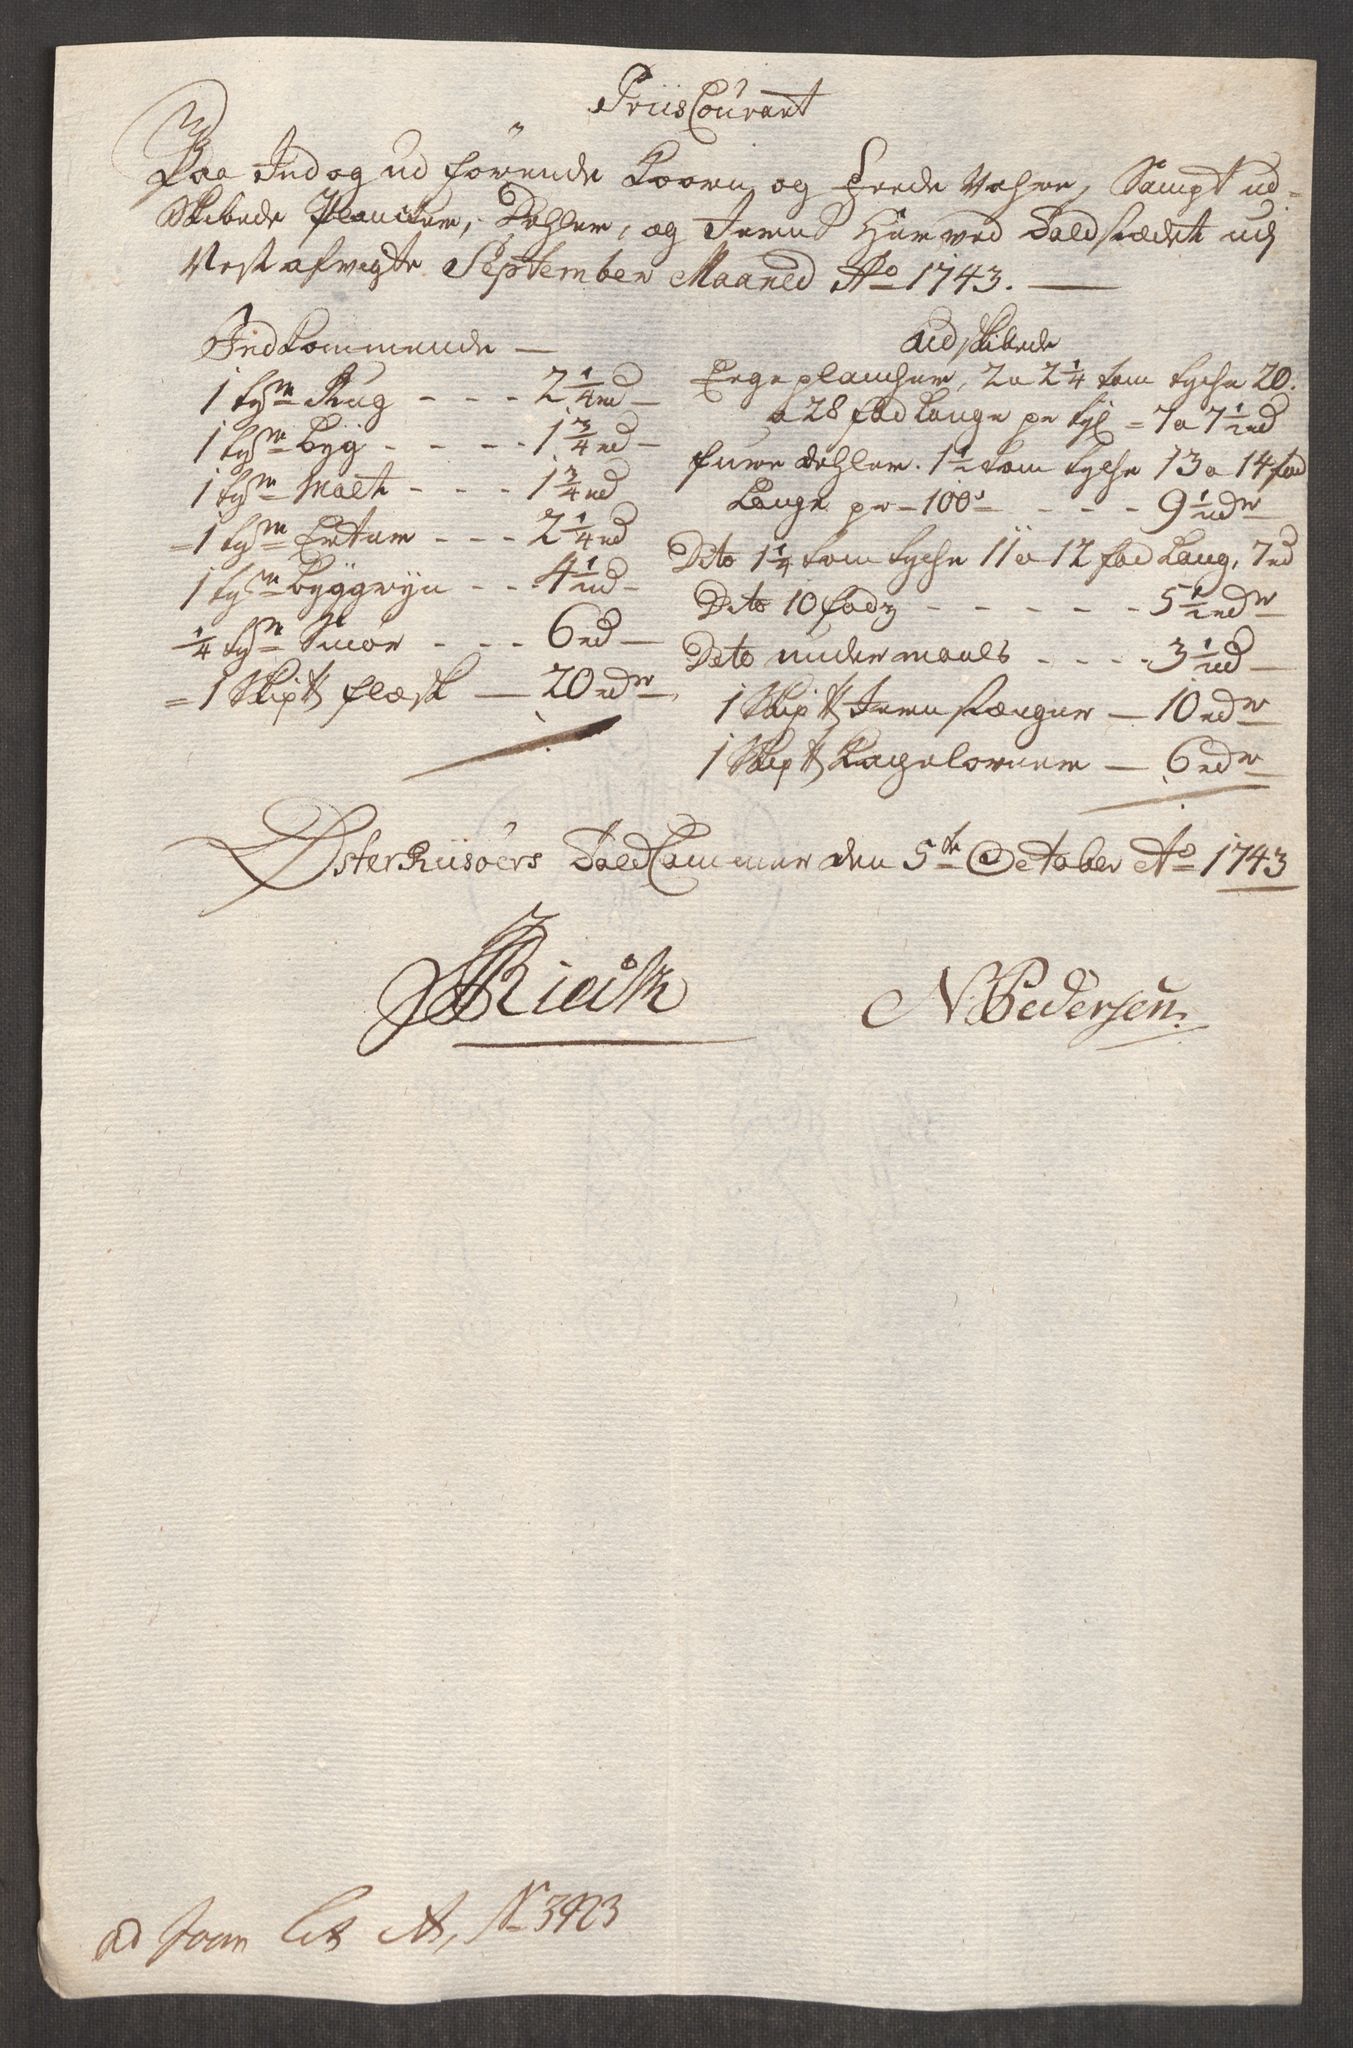 Priis Courant
Paa Ind og ud förende Koorn og Feede Vahre, Sampt ud-
Skibede Plancker, Dehler, og Jern Her ved Toldstædet udj
Nest afvigte September Maaned Ao 1743.
Indkommende
1 tde Rug - - - 2 1/4 rd
1 tde byg - - - - 1 3/4 rd
1 tde Malt - - - 1 3/4 rd
1 tde Erter - - - 2 1/4 rd
1 tde byggryn - - 4 1/2 rd
1/4 tde Smör - - - 6 rd
1 Skip℔ flæsk — 20 rdr
udskibede
Eege plancher, 2 a 2 1/4 tom tycke 20.
a 28 fod Lange pr tyl = 7 a 7 1/2 rd
furre dehler. 1 1/2 tom tycke 13 a 14 fod
Lange pr 100d - - - 9 1/2 rdr
Dito 1 1/4 tom tycke 11 a 12 fod Lang, 7 rd
Dito 10 fody - - - - - 5 1/2 rdr
Dito undermaals - - - - 3 1/2 rd
1 Skip℔ Jern stænger — 10 rdr
1 Skip℔ Kagelovner — 6 rdr
Österriisöers Told Cammer den 5te October Ao 1743
N Pedersen
ad Journ Lit A, No 3923